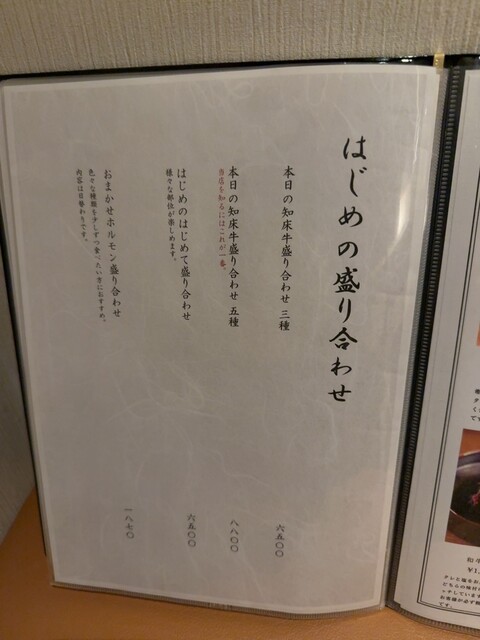 はじめの盛り合わせ
本日の知床牛盛り合わせ 三種
六五〇〇
本日の知床牛盛り合わせ 五種
当店を知るにはこれが一番。
八八〇〇
はじめのはじめて盛り合わせ
様々な部位が楽しめます。
六五〇〇
おまかせホルモン盛り合わせ
色々な種類を少しずつ食べたい方におすすめ。
内容は日替わりです。
一八七〇